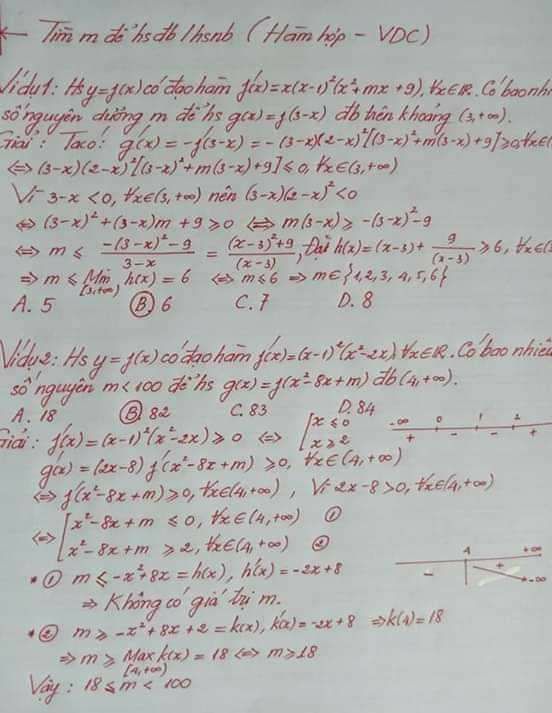 Tìm m để hs đb / hsnb ( Hàm hợp - VDC )
Ví dụ 1: Hs y = f(x) có đạo hàm f'(x) = x(x-1)²(x²+mx+9), ∀x∈R. Có bao nhi
số nguyên dương m để hs g(x) = f(3-x) đb trên khoảng (3,+∞).
Giải: Ta có: g'(x) = -f'(3-x) = -(3-x)(2-x)²[(3-x)²+m(3-x)+9] ≥ 0, ∀x∈(
⇔ (3-x)(2-x)²[(3-x)²+m(3-x)+9] ≤ 0, ∀x∈(3,+∞)
Vì 3-x < 0, ∀x∈(3,+∞) nên (3-x)(2-x)² < 0
⇔ (3-x)² + (3-x)m + 9 ≥ 0 ⇔ m(3-x) ≥ -(3-x)² - 9
⇔ m ≤ (-(3-x)²-9)/(3-x) = ((x-3)²+9)/(x-3), Đặt h(x) = (x-3) + 9/(x-3) ≥ 6, ∀x∈(3
⇒ m ≤ Min h(x) = 6 ⇔ m ≤ 6 ⇒ m∈{1,2,3,4,5,6}
[3,+∞)
A. 5 B. 6 C. 7 D. 8
Ví dụ 2: Hs y = f(x) có đạo hàm f'(x) = (x-1)²(x²-2x), ∀x∈R. Có bao nhiêu
số nguyên m < 100 để hs g(x) = f(x²-8x+m) đb (4,+∞).
A. 18 B. 82 C. 83 D. 84
Giải: f'(x) = (x-1)²(x²-2x) ≥ 0 ⇔ [x ≤ 0 -∞ 0 1 2
x ≥ 2 + - - +
g'(x) = (2x-8) f'(x²-8x+m) ≥ 0, ∀x∈(4,+∞)
⇔ f'(x²-8x+m) ≥ 0, ∀x∈(4,+∞), Vì 2x-8 > 0, ∀x∈(4,+∞)
⇔ [x²-8x+m ≤ 0, ∀x∈(4,+∞) ①
x²-8x+m ≥ 2, ∀x∈(4,+∞) ②
* ① m ≤ -x²+8x = h(x), h'(x) = -2x+8 4 +∞
- + -∞
⇒ Không có giá trị m.
* ② m ≥ -x²+8x+2 = k(x), k'(x) = -2x+8 ⇒ k(4) = 18
⇒ m ≥ Max k(x) = 18 ⇔ m ≥ 18
[4,+∞)
Vậy: 18 ≤ m < 100